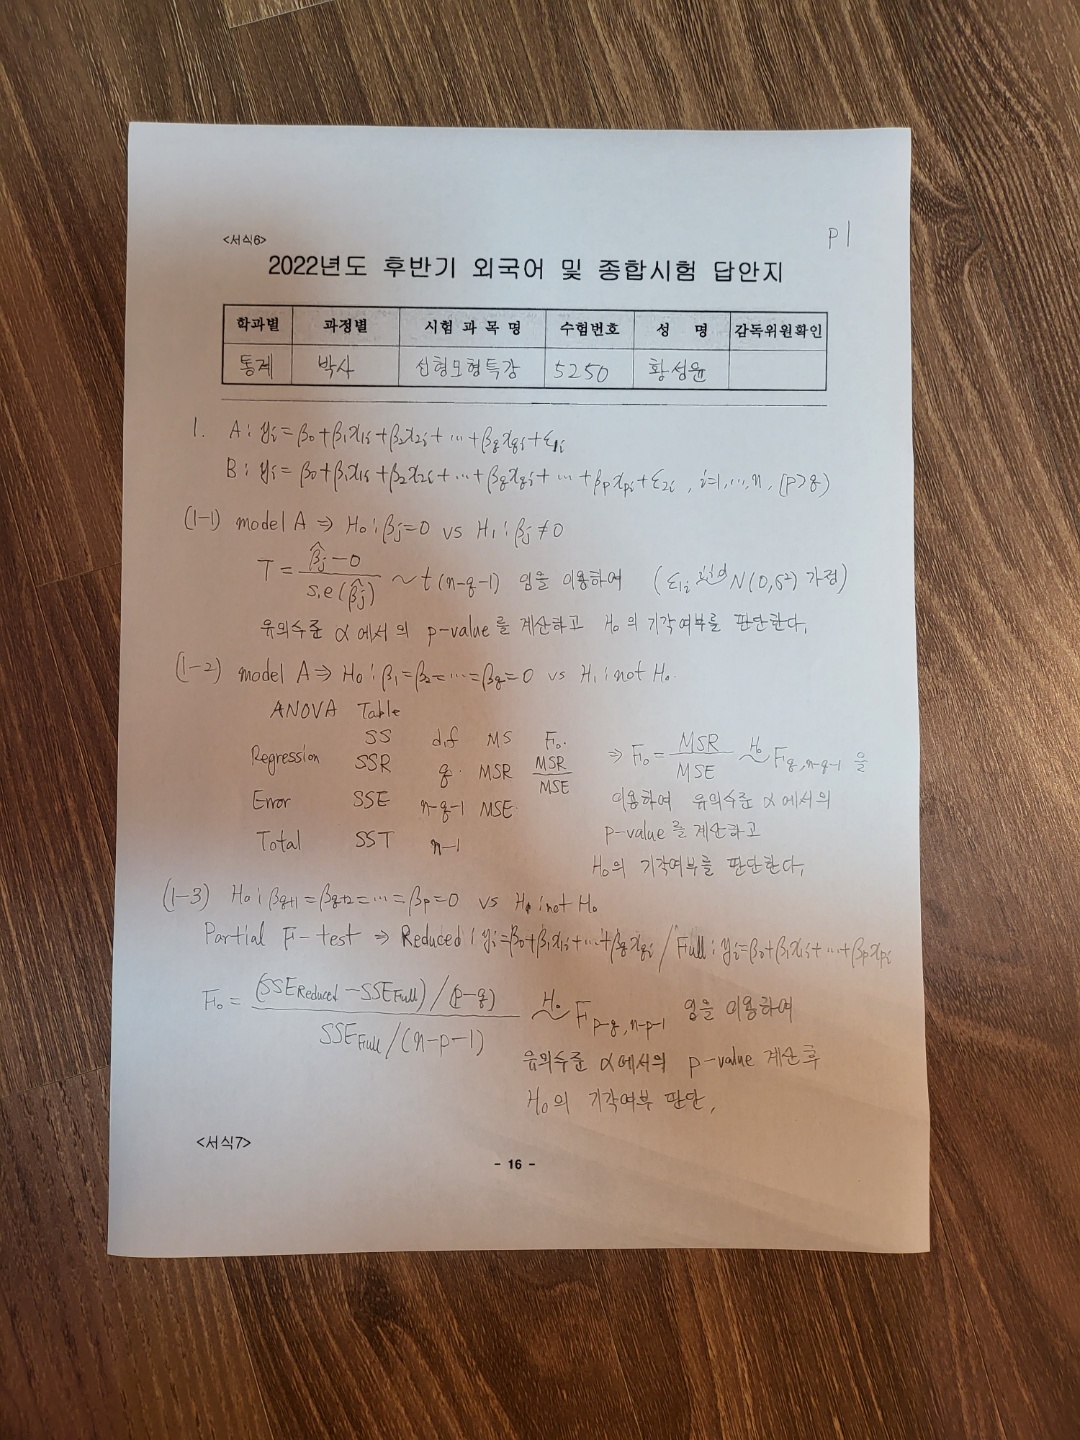 p1
<서식6>
2022년도 후반기 외국어 및 종합시험 답안지
학과별 과정별 시험 과 목 명 수험번호 성 명 감독위원확인
통계 박사 선형모형특강 5250 황성윤
1. A : yi = β0+β1x1i+β2x2i+ ··· +βqxqi+ε1i
B : yi = β0+β1x1i+β2x2i+ ··· +βqxqi+ ··· +βpxpi+ε2i , i=1,...,n, (p>q)
(1-1) model A ⇒ H0 : βj=0 vs H1 : βj≠0
T = (β̂j-0)/s.e(β̂j) ~ t(n-q-1) 임을 이용하여 (ε1i iid~ N(0,σ²) 가정)
유의수준 α에서의 p-value를 계산하고 H0의 기각여부를 판단한다.
(1-2) model A ⇒ H0 : β1=β2= ··· =βq=0 vs H1 : not H0.
ANOVA Table
SS d.f MS F0.
Regression SSR q. MSR MSR/MSE
Error SSE n-q-1 MSE.
Total SST n-1
⇒ F0 = MSR/MSE H0~ Fq,n-q-1 을
이용하여 유의수준 α에서의
p-value를 계산하고
H0의 기각여부를 판단한다.
(1-3) H0 : βq+1=βq+2= ··· =βp=0 vs H1 : not H0
Partial F-test ⇒ Reduced : yi=β0+β1x1i+ ··· +βqxqi / Full : yi=β0+β1x1i+ ··· +βpxpi
F0 = (SSEReduced - SSEFull) / (p-q) / SSEFull / (n-p-1) H0~ Fp-q, n-p-1 임을 이용하여
유의수준 α에서의 p-value 계산 후
H0의 기각여부 판단.
<서식7>
- 16 -